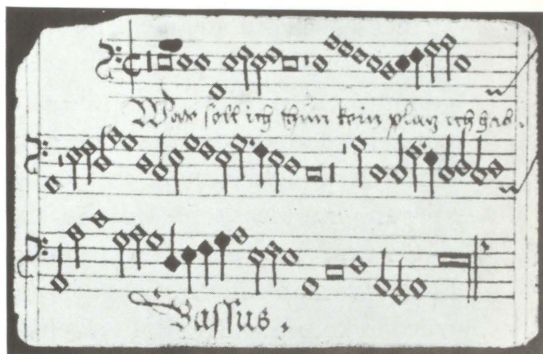 Was soll ich thun kein plag ich hab.
Bassus.